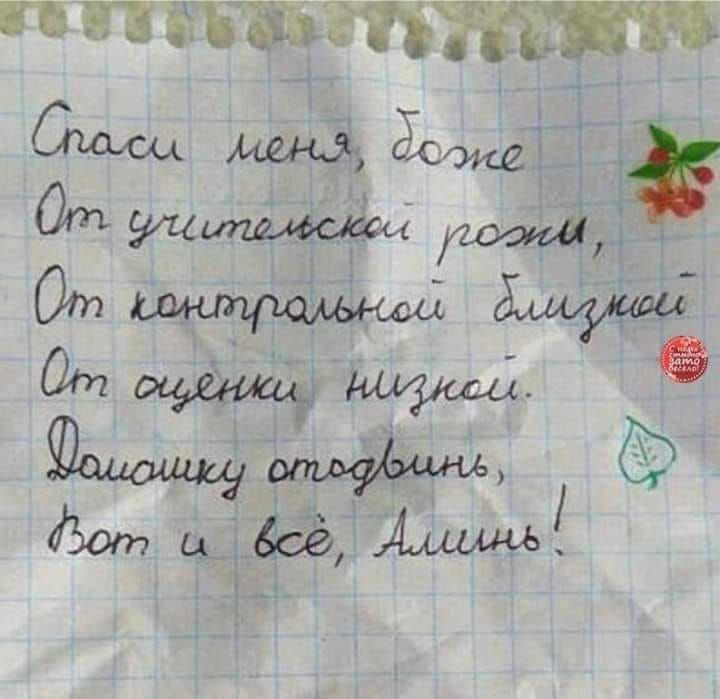 Спаси меня, боже
От учительской рожи,
От контрольной близкой
От оценки низкой.
Домашку отодвинь,
Вот и всё, Аминь!
С нами
стыдно
зато
весело!